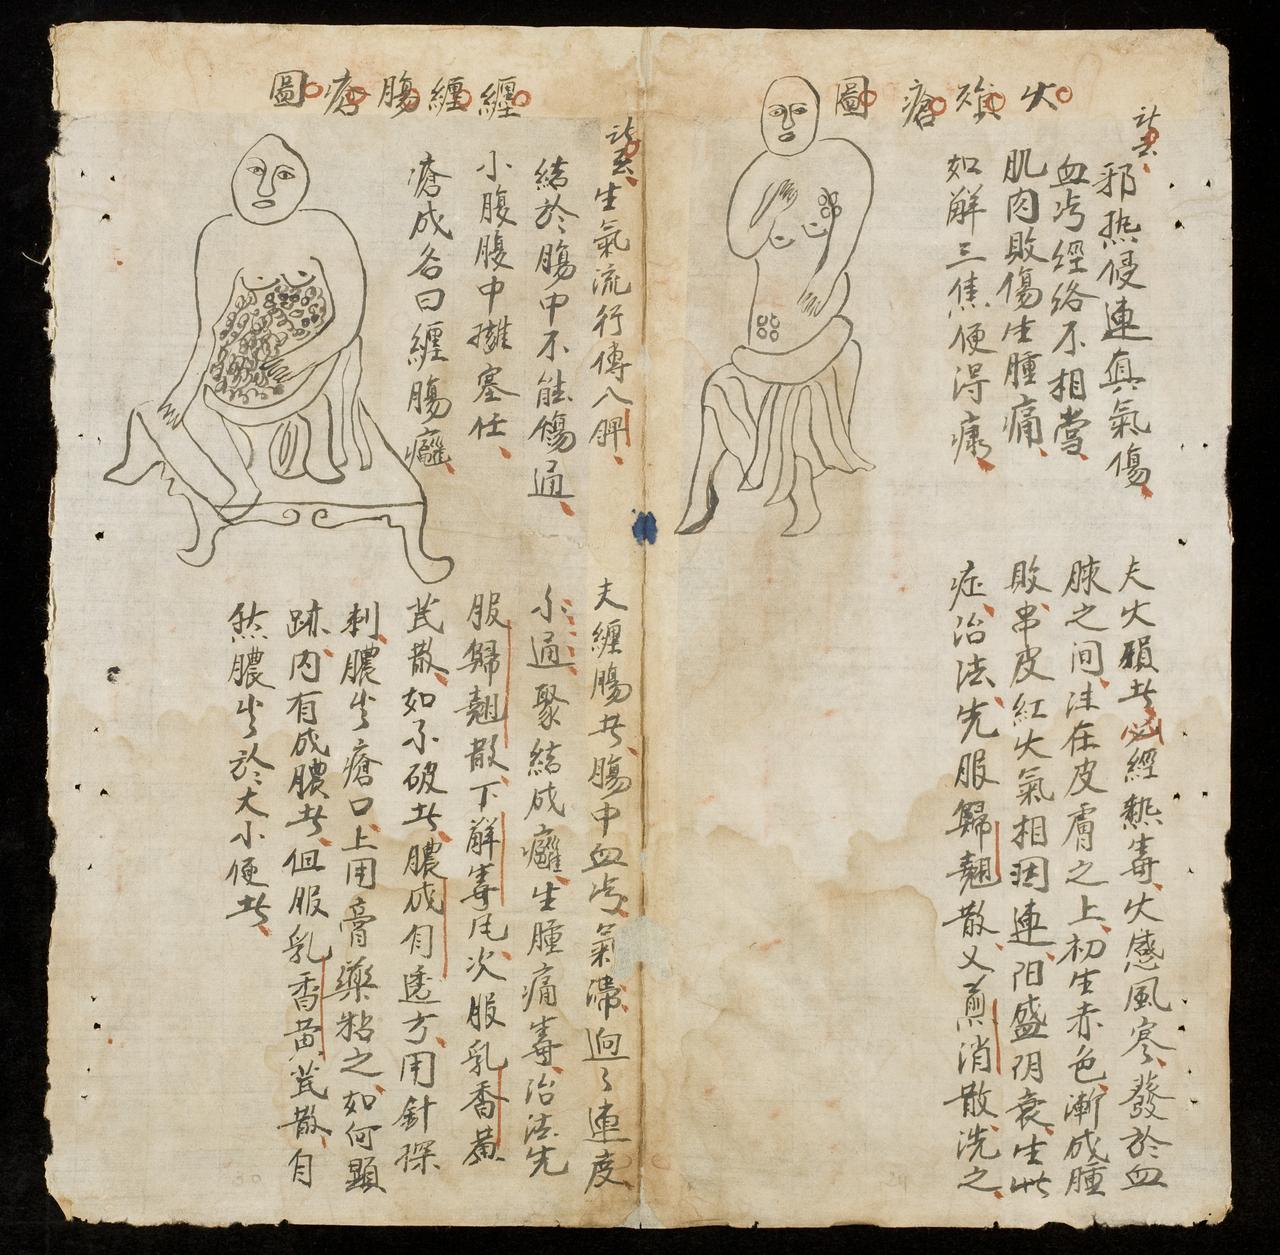 火殞瘡圖
訣云
邪热侵連真氣傷
血汚經络不相當
肌肉敗傷生腫痛
如解三焦便淂康
夫火殞者必經熱毒火感風寒發於血
脉之间注在皮膚之上初生赤色漸成腫
敗串皮紅火氣相因連阳盛阴衰生此
症治法先服歸翹散又煎消散洗之
纏纏腸瘡圖
訣云生氣流行傳八脾
結於腸中不能傷通
小腹腹中擁塞任
瘡成名曰纏腸癰
夫纏腸者腸中血汚氣滯逈々連度
不通聚結成癰生腫痛毒治法先
服歸翹散下解毒尾次服乳香黄
芪散如不破者膿成自透方用針探
刺膿出瘡口上用膏藥粘之如何顯
跡内有成膿者但服乳香黄芪散自
然膿出於大小便者